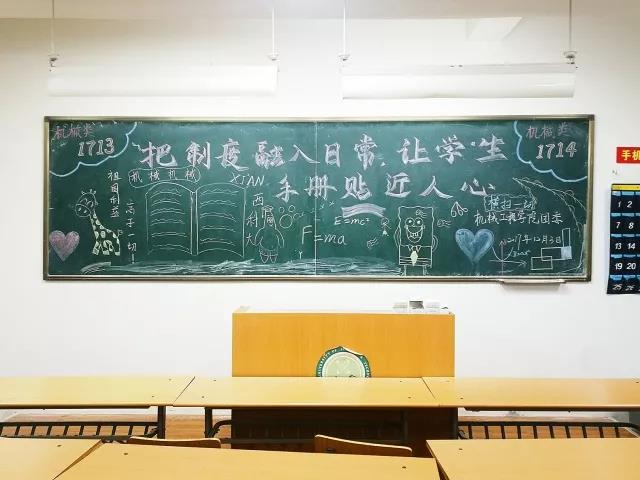 机械类
1713
机械类
1714
把制度融入日常 让学生
手册贴近人心
机械机械
XIAN
祖国利益
高于一切
西科大
E=mc²
F=ma
横扫一切
机械工程学院团委
2017年12月3日
手机
1 2
7 8
13 14
19 20
25 26